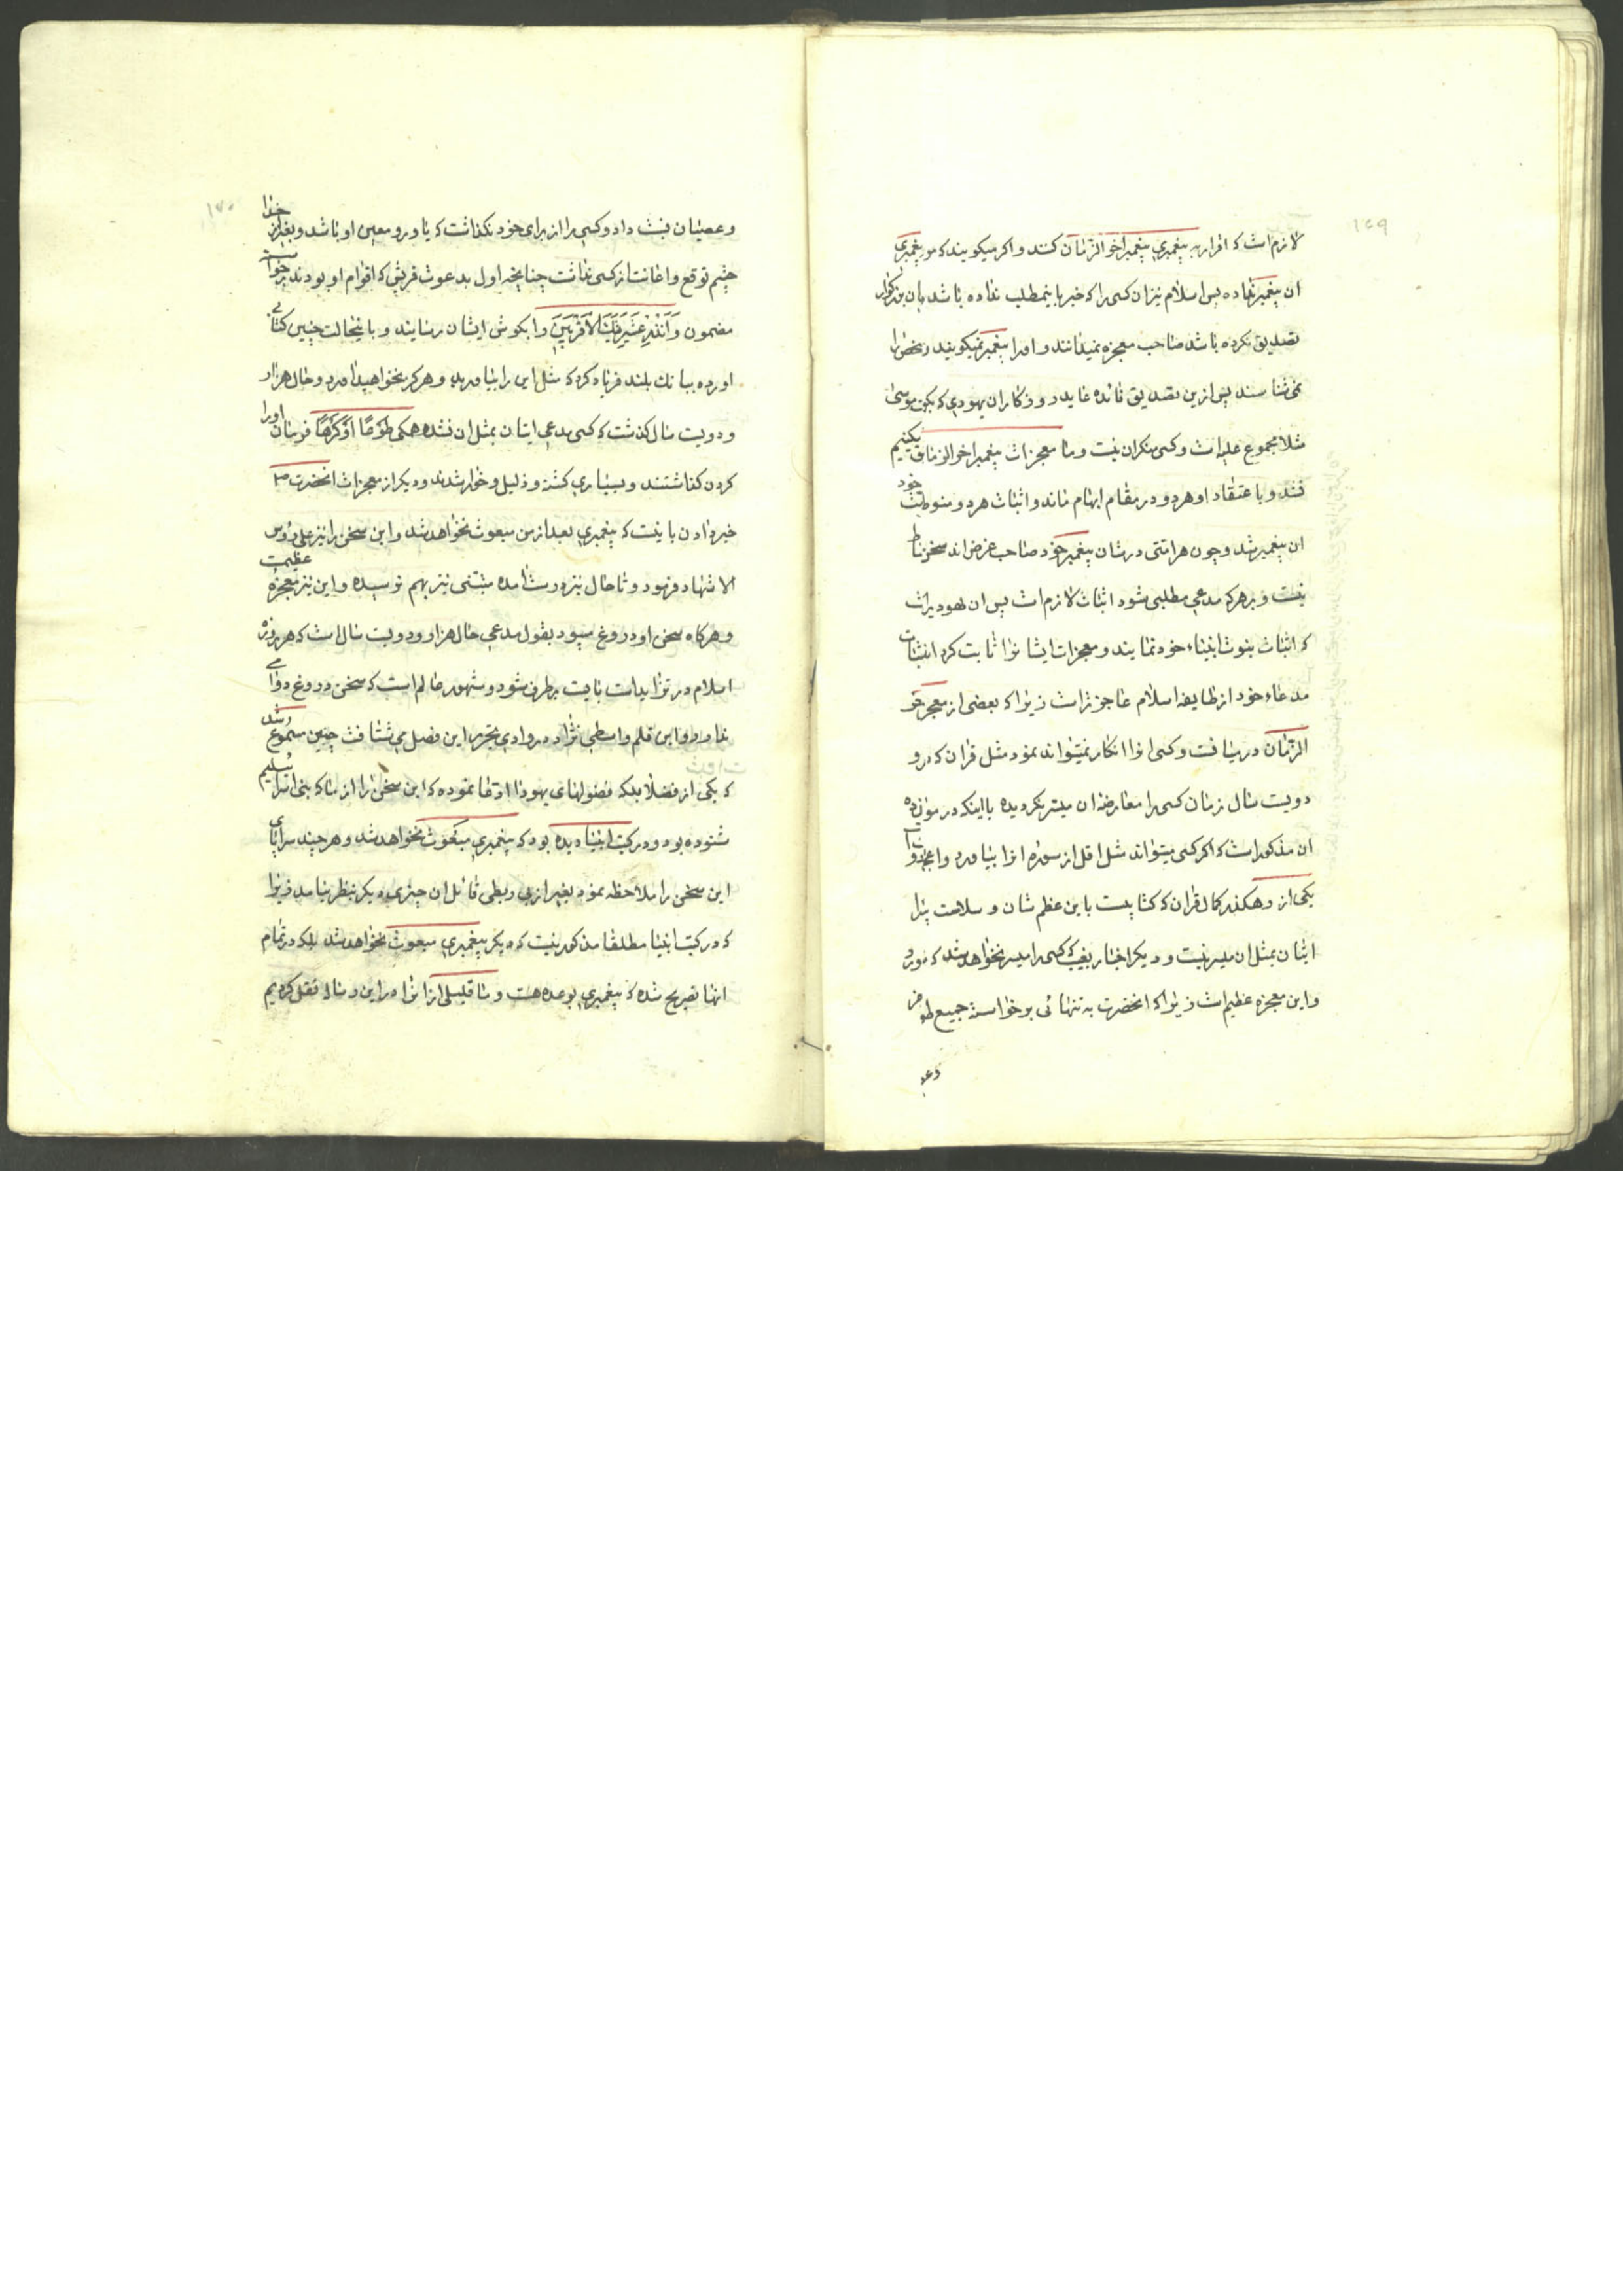 ۱۶۹
لازم است که اقرار به پیغمبری پیغمبر اخر الزمان کنند و اکر میکویند که موسی پیغمبری
ان پیغمبر نداده پس اسلام نیز ان کسی را که خبر باینمطلب نداده باشد بان بزرکوار
تصدیق نکرده باشد صاحب معجزه نمیدانند و او را پیغمبر نمیکویند
نمی شناسند پس ازین تصدیق فائده عاید روزکار ان یهودی که موسی
مثلا مجموع علیه است و کسی منکر ان نیست و ما معجزات پیغمبر اخر الزمان
نشد و با عتقاد او هر دو در مقام ابهام ماند و اثبات هر دو
ان پیغمبر شد و چون هر امتی در شان پیغمبر خود صاحب غرض اند سخن
نیست و بر هر که مدعی مطلبی شود اثبات لازم است پس ان یهود
که اثبات نبوت انبیاء خود نمایند و معجزات ایشانرا ثابت کرد
مدعاء خود از طایفه اسلام عاجز تر است زیرا که بعضی از معجز
الزمان دریافت و کسی انرا انکار نمیتواند نمود مثل قران که در
دویست سال زمان کسی را معارضه ان میسر نکردیده با اینکه در
ان مذکور است که اکر کسی میتواند مثل اقل از سوره انرا بیاورد و
یکی از رهکذر کمال قران که کتابیست باین عظم شان و سلاست
اتیان بمثل ان میسر نیست و دیکر اخبار بغیب که کسی را میسر نخواهد شد که
و این معجزه عظیم است زیرا که انحضرت به تنهائی بر خواسته جمیع طوایف
۱۷۰
خدا
و عصیان نسبت داد و کسی را از برای خود نکذاشت که یاور و معین او باشد و بغیر از
چشم توقع و اعانت از کسی نداشت چنانچه اول بدعوت قریش که اقوام او بودند برخواسته
مضمون وَاَنْذِرْ عَشِیرَتَکَ الْاَقْرَبِینَ را بکوش ایشان رسانید و با ینحالت چنین کتابی
اورده ببانک بلند فریاد کرد که مثل این را بیاورید و هرکز نخواهید اورد و حال هزار
و دویست سال کذشت که کسی مدعی اتیان بمثل ان نشده همکی طَوْعًا اَوْ کَرْهًا فرمان او را
کردن کذاشتند و بسیاری کشته و ذلیل و خوار شدند و دیکر از معجزات انحضرت ص
خبر دادن باینست که پیغمبری بعد از من مبعوث نخواهد شد و این سخن را نیز علی رؤس
الاشهاد فرمود و تا حال نیز درست امده متنبی نیز بهم نرسیده و این نیز معجزه عظیمست
و هرکاه سخن او دروغ میبود بقول مدعی حال هزار و دویست سال است که هر روزه
اسلام در تزاید است بایست برطرف شود و مشهور عالم است که سخن دروغ دوامی
ندارد و این قلم واسطی نژاد در وادی تحریر این فصل می شتافت چنین مسموع شد
که یکی از فضلا بلکه فضولهای یهود ادعا نموده که این سخن را از ما که بنی اسرائیلیم
شنوده بود و در کتب انبیا دیده بود که پیغمبری مبعوث نخواهد شد و هر چند سراپای
این سخن را ملاحظه نمود بغیر از بی ربطی قائل ان چیزی دیکر بنظر نیامد زیرا
که در کتب انبیا مطلقا مذکور نیست که دیکر پیغمبری مبعوث نخواهد شد بلکه در تمام
انها تصریح شده که پیغمبری بوعده هست و ما قلیلی از انرا در این رساله نقل کردیم